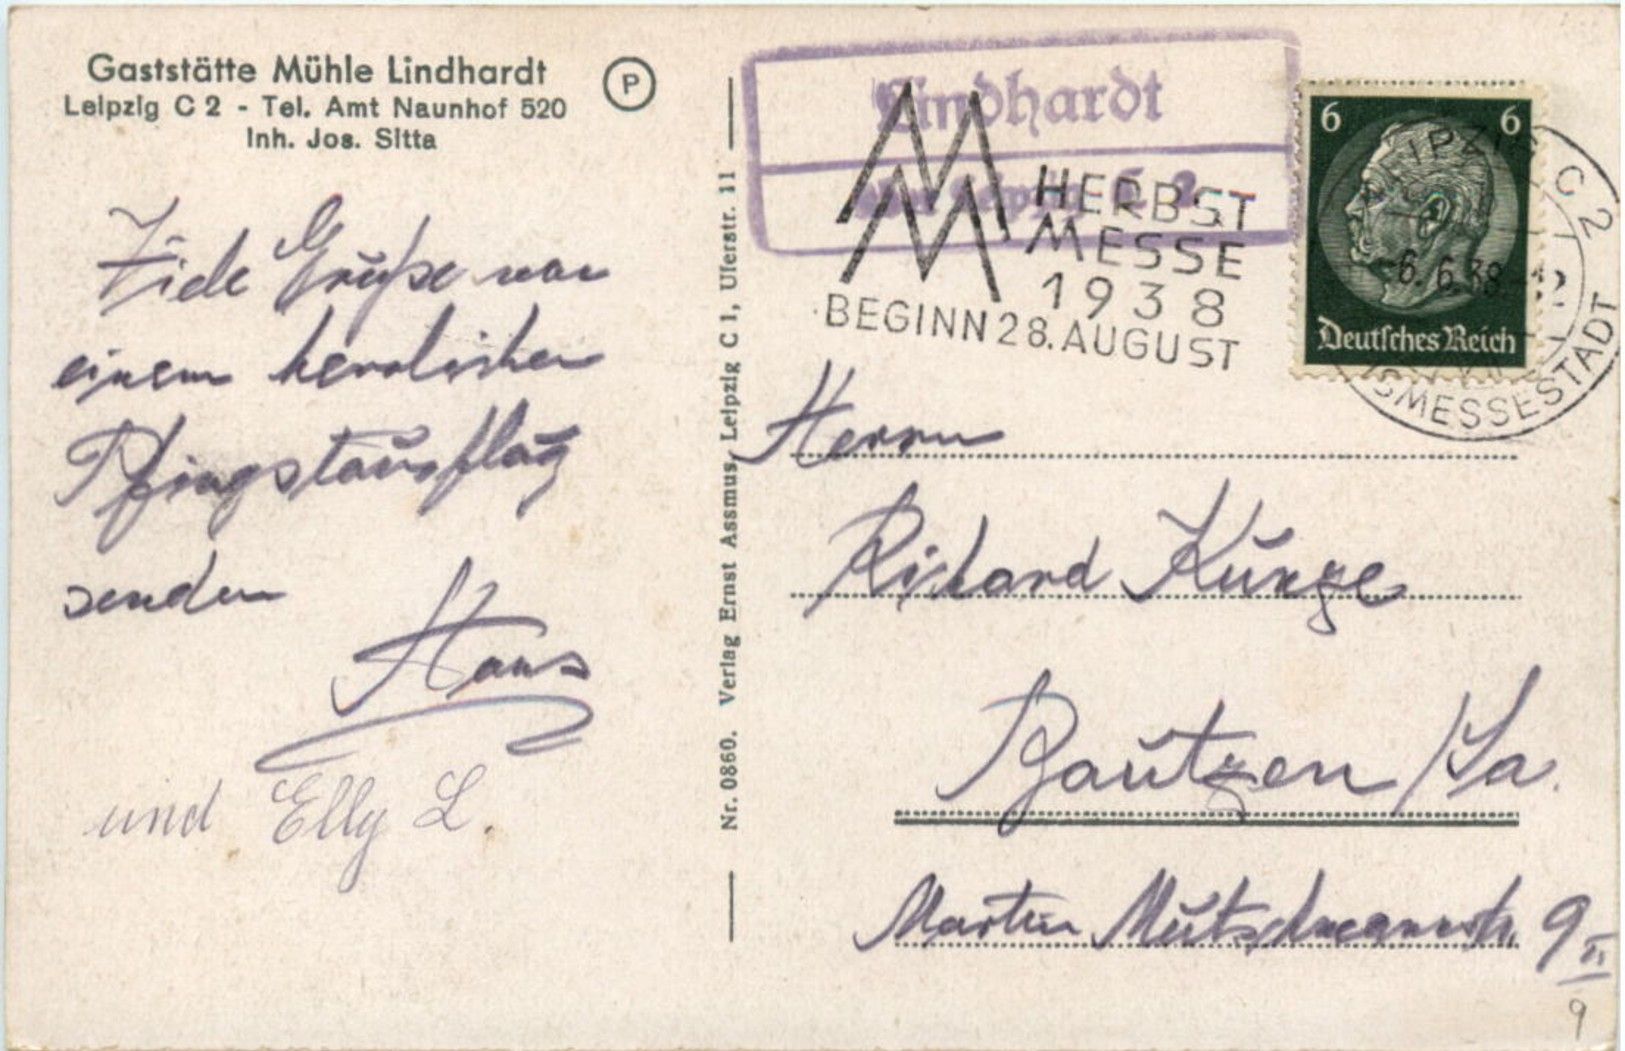 Gaststätte Mühle Lindhardt
Leipzig C 2 - Tel. Amt Naunhof 520
Inh. Jos. Sitta
P
Viele Grüße von
einem herrlichen
Pfingstausflug
senden
Hans
und Elly L.
Nr. 0860. Verlag Ernst Assmus, Leipzig C 1, Uferstr. 11
Lindhardt
über Leipzig C 2
MM
HERBST
MESSE
1938
BEGINN 28. AUGUST
6 6
Deutsches Reich
LEIPZIG C 2
-6.6.38-12
SMESSESTADT
Herrn
Richard Kunze
Bautzen /Sa.
Martin Mutschmannstr. 9 II
9